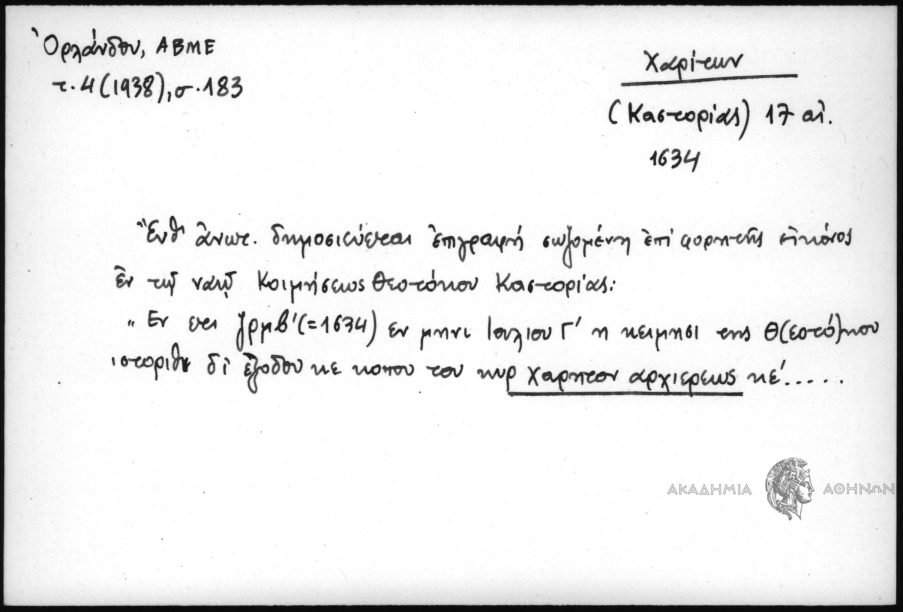 Ὀρλάνδου, ΑΒΜΕ
τ. 4 (1938), σ. 183
Χαρίτων
(Καστορίας) 17 αἰ.
1634
Ἔνθ' ἄνωτ. δημοσιεύεται ἐπιγραφή σωζομένη ἐπί φορητῆς εἰκόνος
ἐν τῷ ναῷ Κοιμήσεως Θεοτόκου Καστορίας:
"Εν ετι ζρμβ' (=1634) εν μηνι Ιουλιου Γ' η κειμησι της Θ(εοτό)κου
ιστοριθη δι ἐξοδου κε κοπου του κυρ Χαρητον αρχιερεως κέ.....
ΑΚΑΔΗΜΙΑ ΑΘΗΝΩΝ